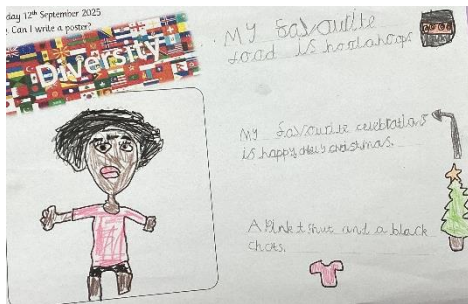 day 12th September 2025
. Can I write a poster?
Diversity
My favourite
food is hoolahoops
My favourite celebrations
is happy christmas.
A Pink t shirt and a black